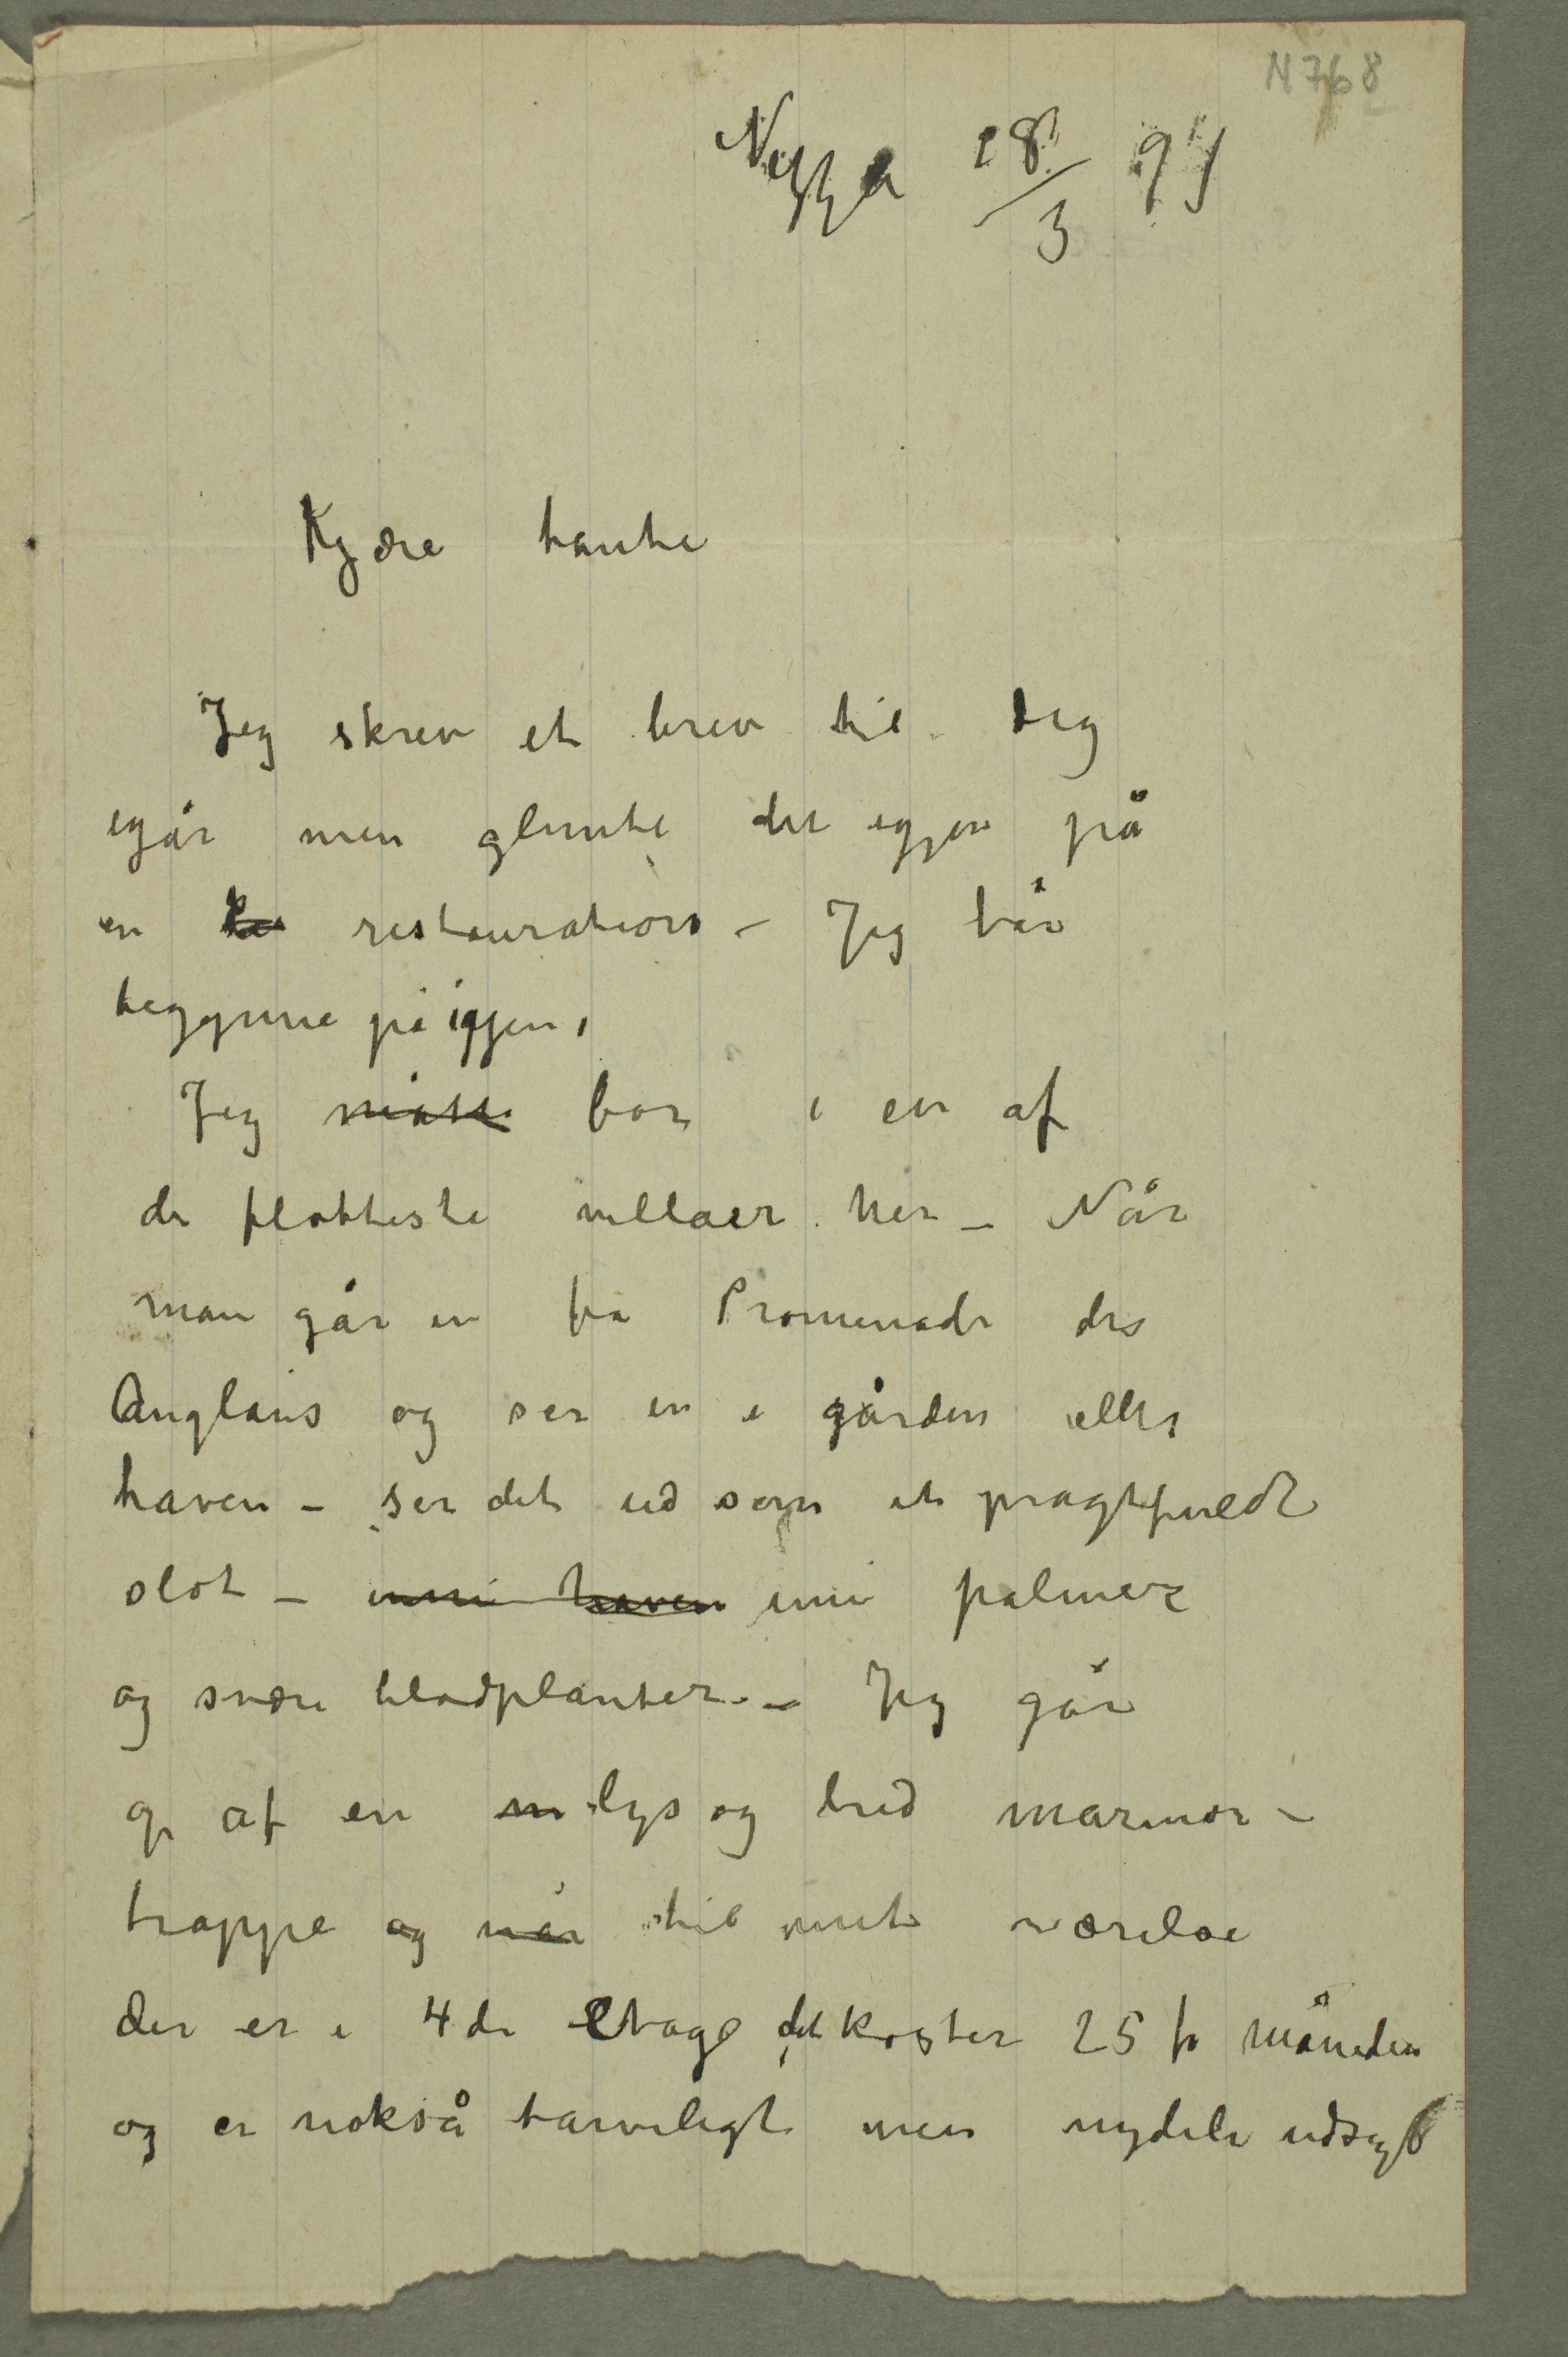 N 768
Nizza 18/3 91
Kjære tante
Jeg skrev et brev til dig
igår men glemte det igjen på
en restauration – Jeg får
begynne på igjen,
Jeg måtte bor i en af
de flotteste villaer her – Når
man går in fra Promenade des
Anglais og ser in i gården eller
haven – ser det ud som et pragtfuldt
slot – inni haven inni palmer
og svære bladplanter. – Jeg går
op af en m lys og bred marmor-
trappe og når til mit værelse
der er i 4de Etage, det koster 25 fr måneden
og er nokså tarveligt men nydeli udsigt